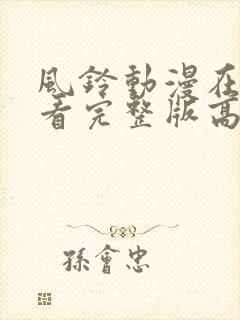 風鈴動漫在
看完整版高
孫會忠